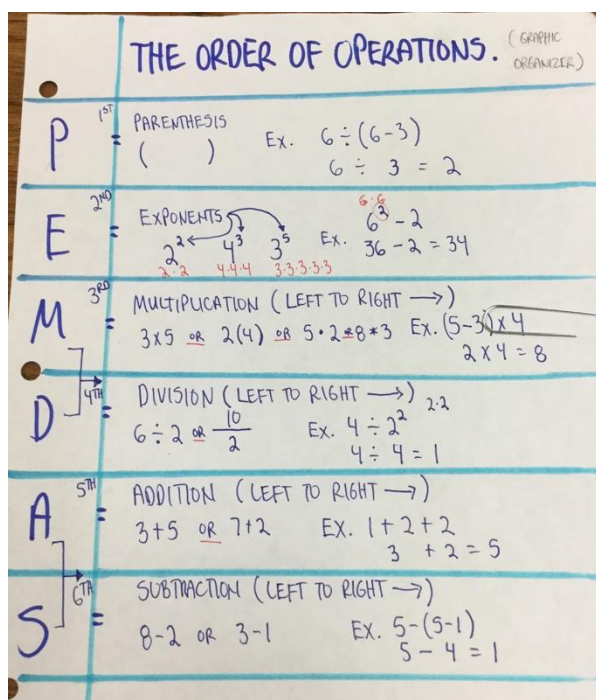 THE ORDER OF OPERATIONS. (GRAPHIC ORGANIZER)
P 1ST = PARENTHESIS
( ) Ex. 6÷(6-3)
6 ÷ 3 = 2
E 2ND = EXPONENTS
6·6
2² 4³ 3⁵ Ex. 6² - 2
2·2 4·4·4 3·3·3·3·3 36 - 2 = 34
M 3RD = MULTIPLICATION (LEFT TO RIGHT →)
3x5 OR 2(4) OR 5·2 OR 8*3 Ex. (5-3) x 4
2 x 4 = 8
D 4TH = DIVISION (LEFT TO RIGHT →) 2·2
6÷2 OR 10/2 Ex. 4÷2²
4÷4 = 1
A 5TH = ADDITION (LEFT TO RIGHT →)
3+5 OR 7+2 Ex. 1+2+2
3 +2 = 5
S 6TH = SUBTRACTION (LEFT TO RIGHT →)
8-2 OR 3-1 Ex. 5-(5-1)
5 - 4 = 1